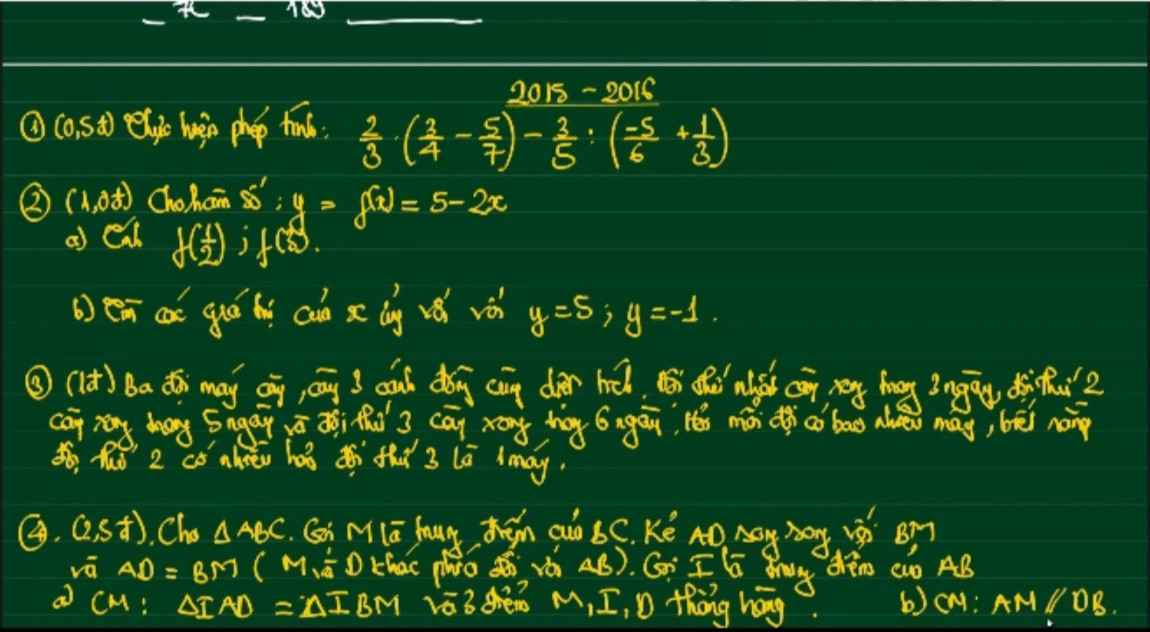 2015 - 2016
① (0,5đ) Thực hiện phép tính: 2/3 . (3/4 - 5/7) - 3/5 : (-5/6 + 1/3)
② (1,0đ) Cho hàm số : y = f(x) = 5 - 2x
a) Tính f(1/2) ; f(3).
b) Tìm các giá trị của x ứng với với y = 5 ; y = -1 .
③ (1đ) Ba đội máy cày , cày 3 cánh đồng cùng diện tích. Đội thứ nhất cày xong trong 3 ngày, đội thứ 2
cày xong trong 5 ngày và đội thứ 3 cày xong trong 6 ngày. Hỏi mỗi đội có bao nhiêu máy , biết rằng
đội thứ 2 có nhiều hơn đội thứ 3 là 1 máy.
④. (2,5đ). Cho Δ ABC. Gọi M là trung điểm của BC. Kẻ AD song song với BM
và AD = BM ( M và D khác phía đối với AB). Gọi I là trung điểm của AB
a) CM : ΔIAD = ΔIBM và 3 điểm M, I, D thẳng hàng .
b) CM : AM // DB.